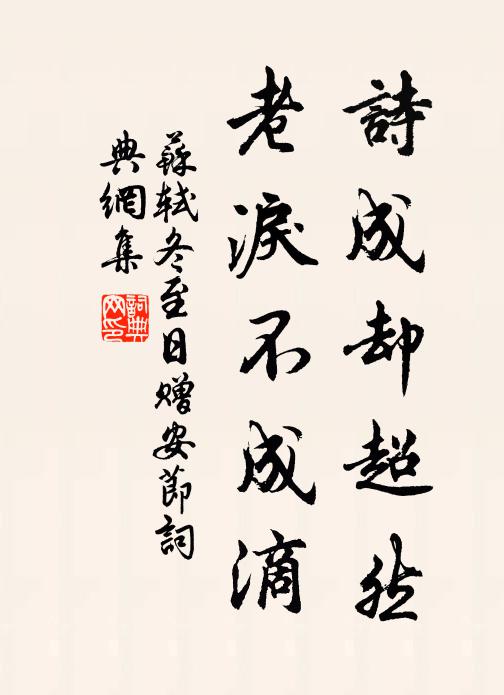 詩成却超然
老淚不成滴
蘇軾冬至日贈安節詞
典網集
詞典網印